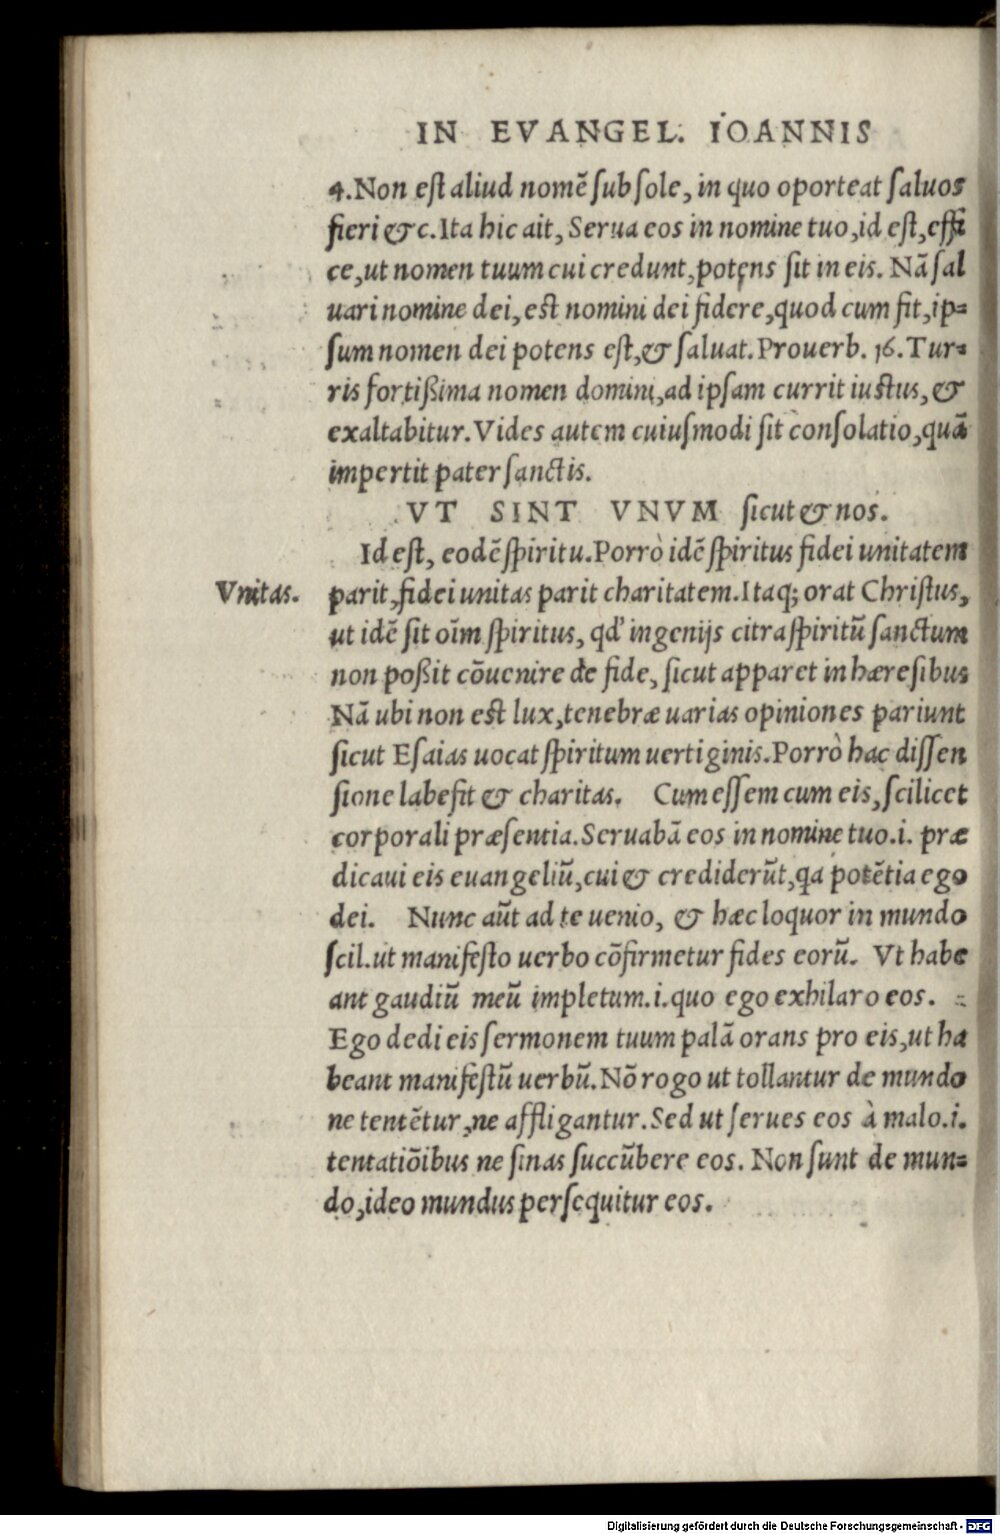 IN EVANGEL. IOANNIS
4.Non est aliud nomē sub sole, in quo oporteat saluos
fieri &c. Ita hic ait, Serua eos in nomine tuo, id est, effi
ce, ut nomen tuum cui credunt, potens sit in eis. Nā sal
uari nomine dei, est nomini dei fidere, quod cum fit, ip=
sum nomen dei potens est, & saluat. Prouerb. 16. Tur=
ris fortißima nomen domini, ad ipsam currit iustus, &
exaltabitur. Vides autem cuiusmodi sit consolatio, quā
impertit pater sanctis.
VT SINT VNVM sicut & nos.
Id est, eodē spiritu. Porrò idē spiritus fidei unitatem
Vnitas.
parit, fidei unitas parit charitatem. Itaq; orat Christus,
ut idē sit oīm spiritus, qd' ingenijs citra spiritū sanctum
non poßit cōuenire de fide, sicut apparet in hæresibus
Nā ubi non est lux, tenebræ uarias opiniones pariunt
sicut Esaias uocat spiritum uertiginis. Porrò hac dissen
sione labefit & charitas. Cum essem cum eis, scilicet
corporali præsentia. Seruabā eos in nomine tuo .i. præ
dicaui eis euangeliū, cui & crediderūt, qa potētia ego
dei. Nunc aūt ad te uenio, & hæc loquor in mundo
scil. ut manifesto uerbo cōfirmetur fides eorū. Vt habe
ant gaudiū meū impletum .i. quo ego exhilaro eos.
Ego dedi eis sermonem tuum palā orans pro eis, ut ha
beant manifestū uerbū. Nō rogo ut tollantur de mundo
ne tentētur, ne affligantur. Sed ut serues eos à malo .i.
tentatiōibus ne sinas succūbere eos. Non sunt de mun=
do, ideo mundus persequitur eos.
Digitalisierung gefördert durch die Deutsche Forschungsgemeinschaft - DFG